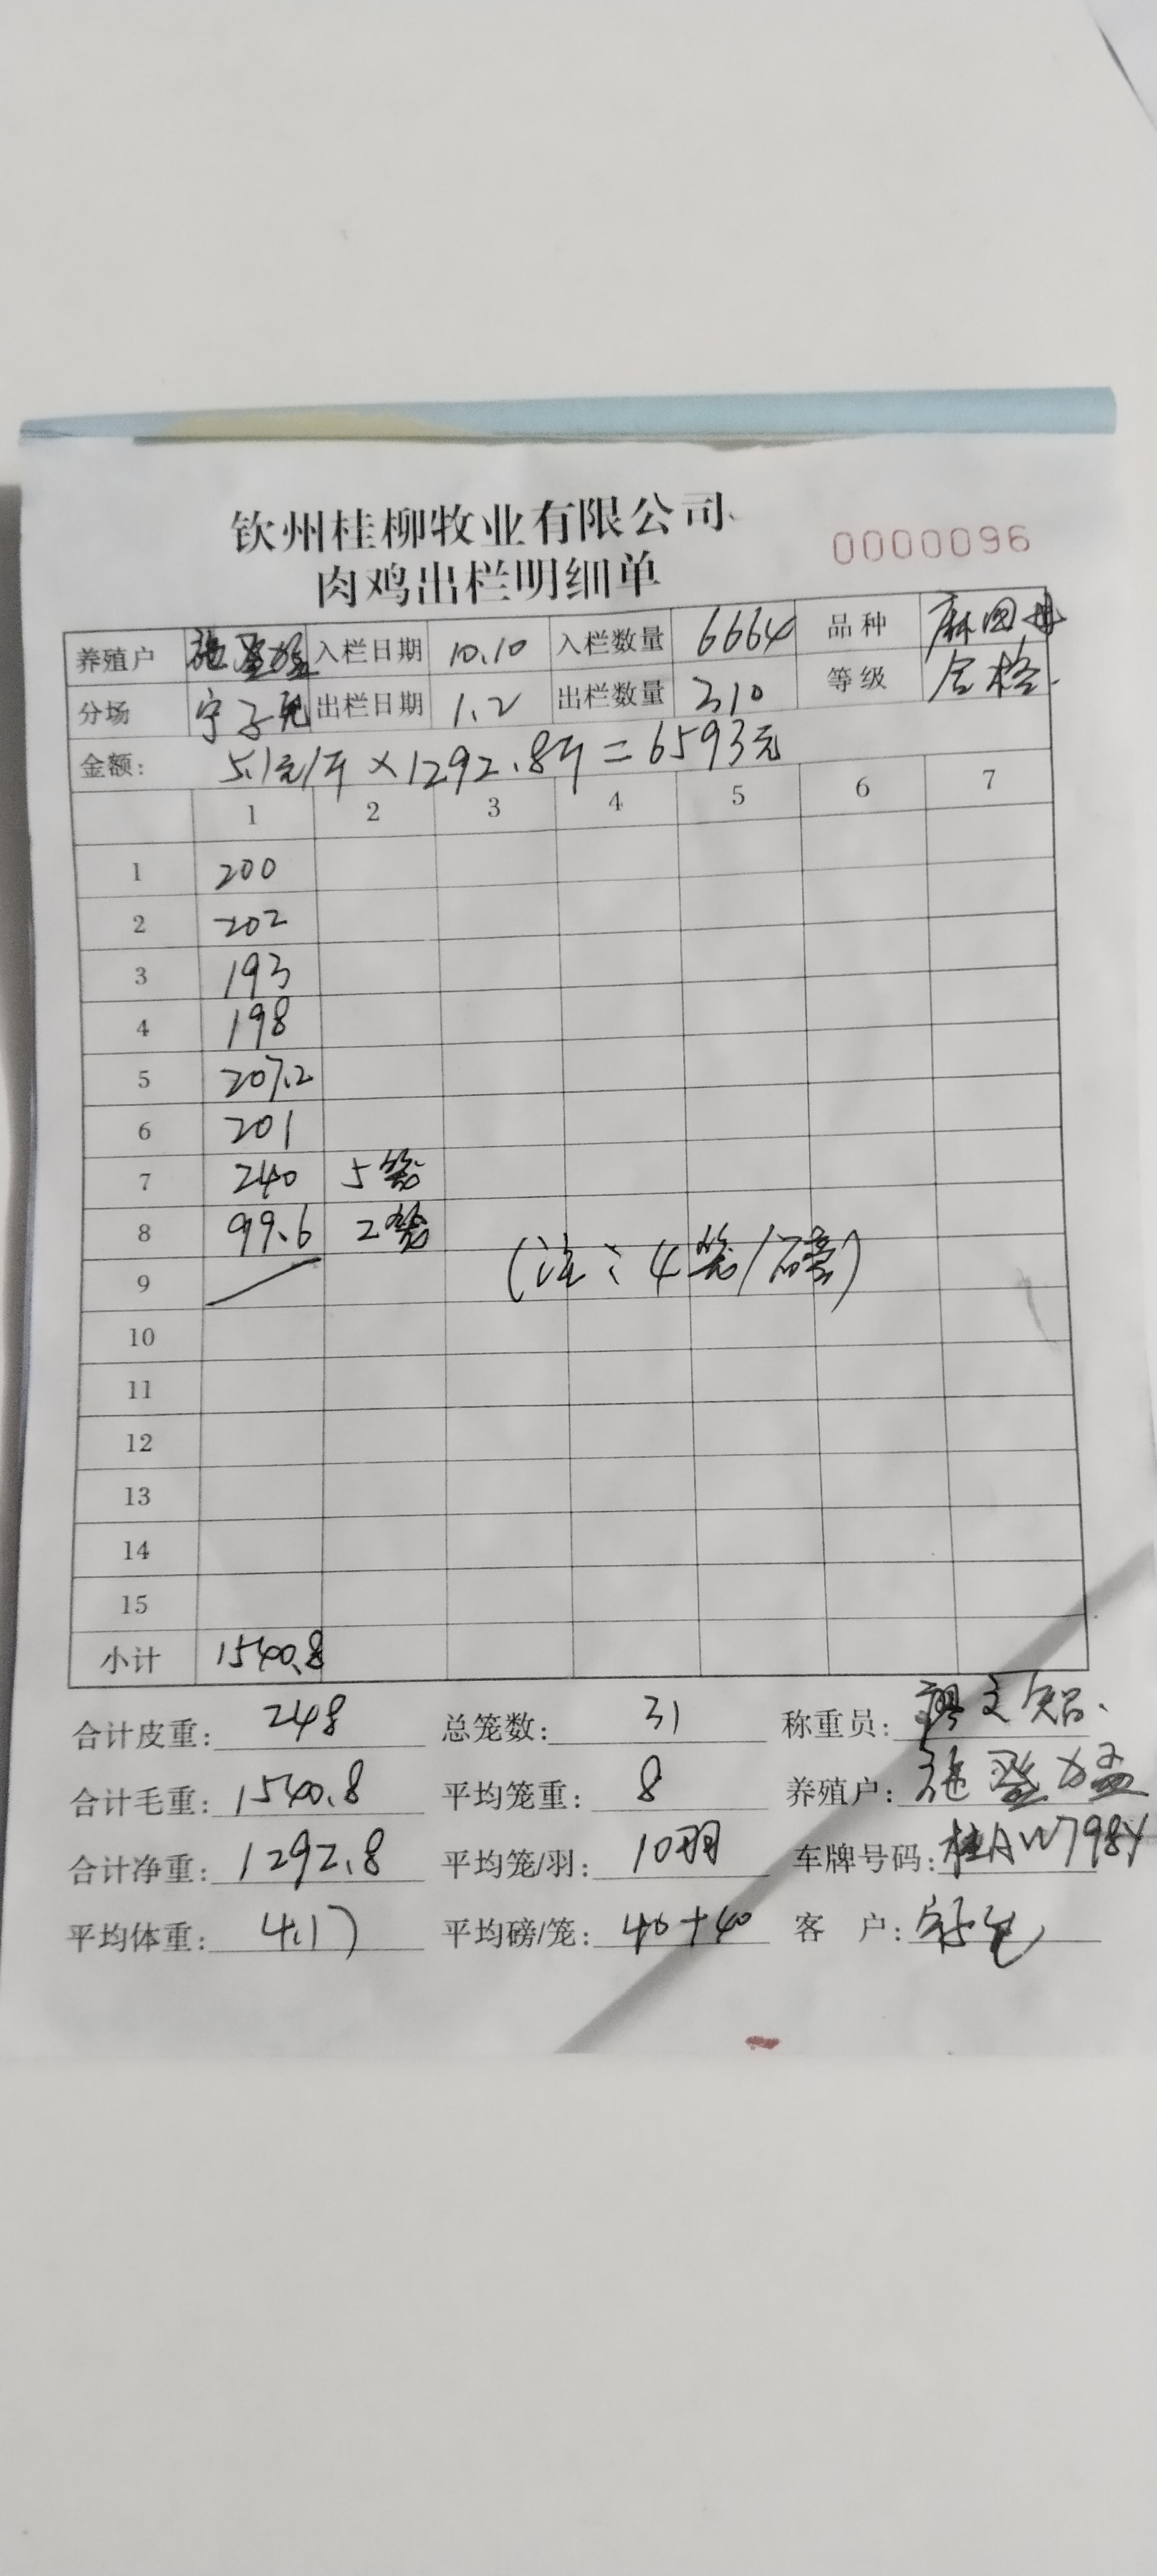 钦州桂柳牧业有限公司
0000096
肉鸡出栏明细单
养殖户 入栏日期 10.10 入栏数量 6664 品种 麻
分场 宁 出栏日期 1.2 出栏数量 310 等级 合格.
金额: 5.1元/斤×1292.8斤=6593元
1 2 3 4 5 6 7
1 200
2 202
3 193
4 198
5 207.2
6 201
7 240 5笼
8 99.6 2笼
(注:4笼/磅)
9
10
11
12
13
14
15
小计 1540.8
合计皮重: 248 总笼数: 31 称重员:
合计毛重: 1540.8 平均笼重: 8 养殖户: 施
合计净重: 1292.8 平均笼/羽: 10羽 车牌号码: 桂AW798Y
平均体重: 4.17 平均磅/笼: 40+40 客 户: